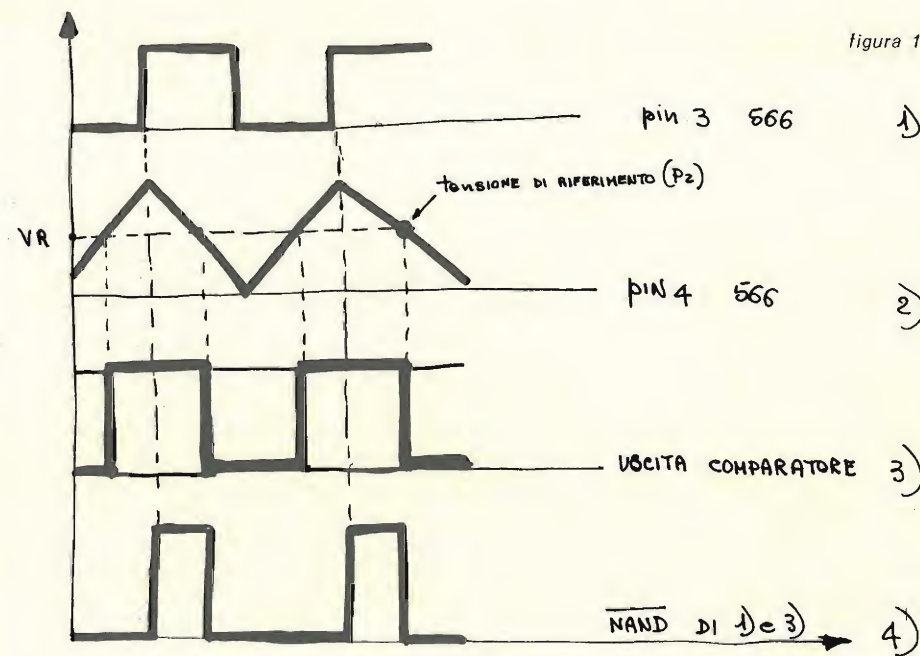 figura 1
pin 3 566 1)
tensione di riferimento (P2)
VR
pin 4 566 2)
USCITA COMPARATORE 3)
N̅A̅N̅D̅ DI 1) e 3) 4)